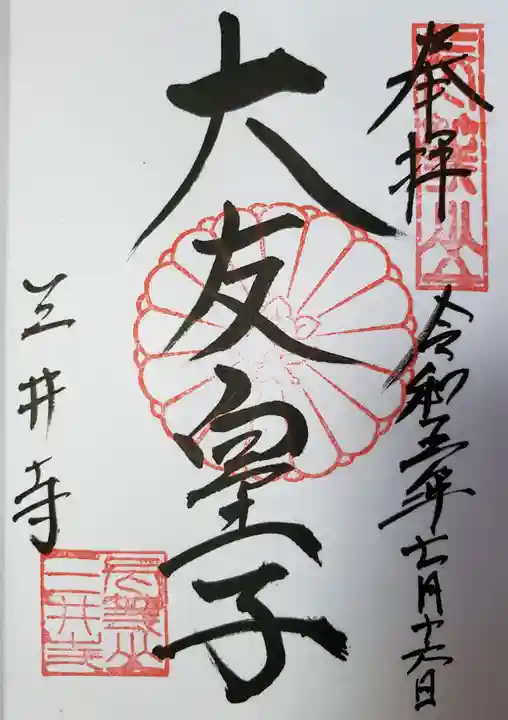 奉拝
令和五年七月十六日
大友皇子
三井寺
長等山
三井寺